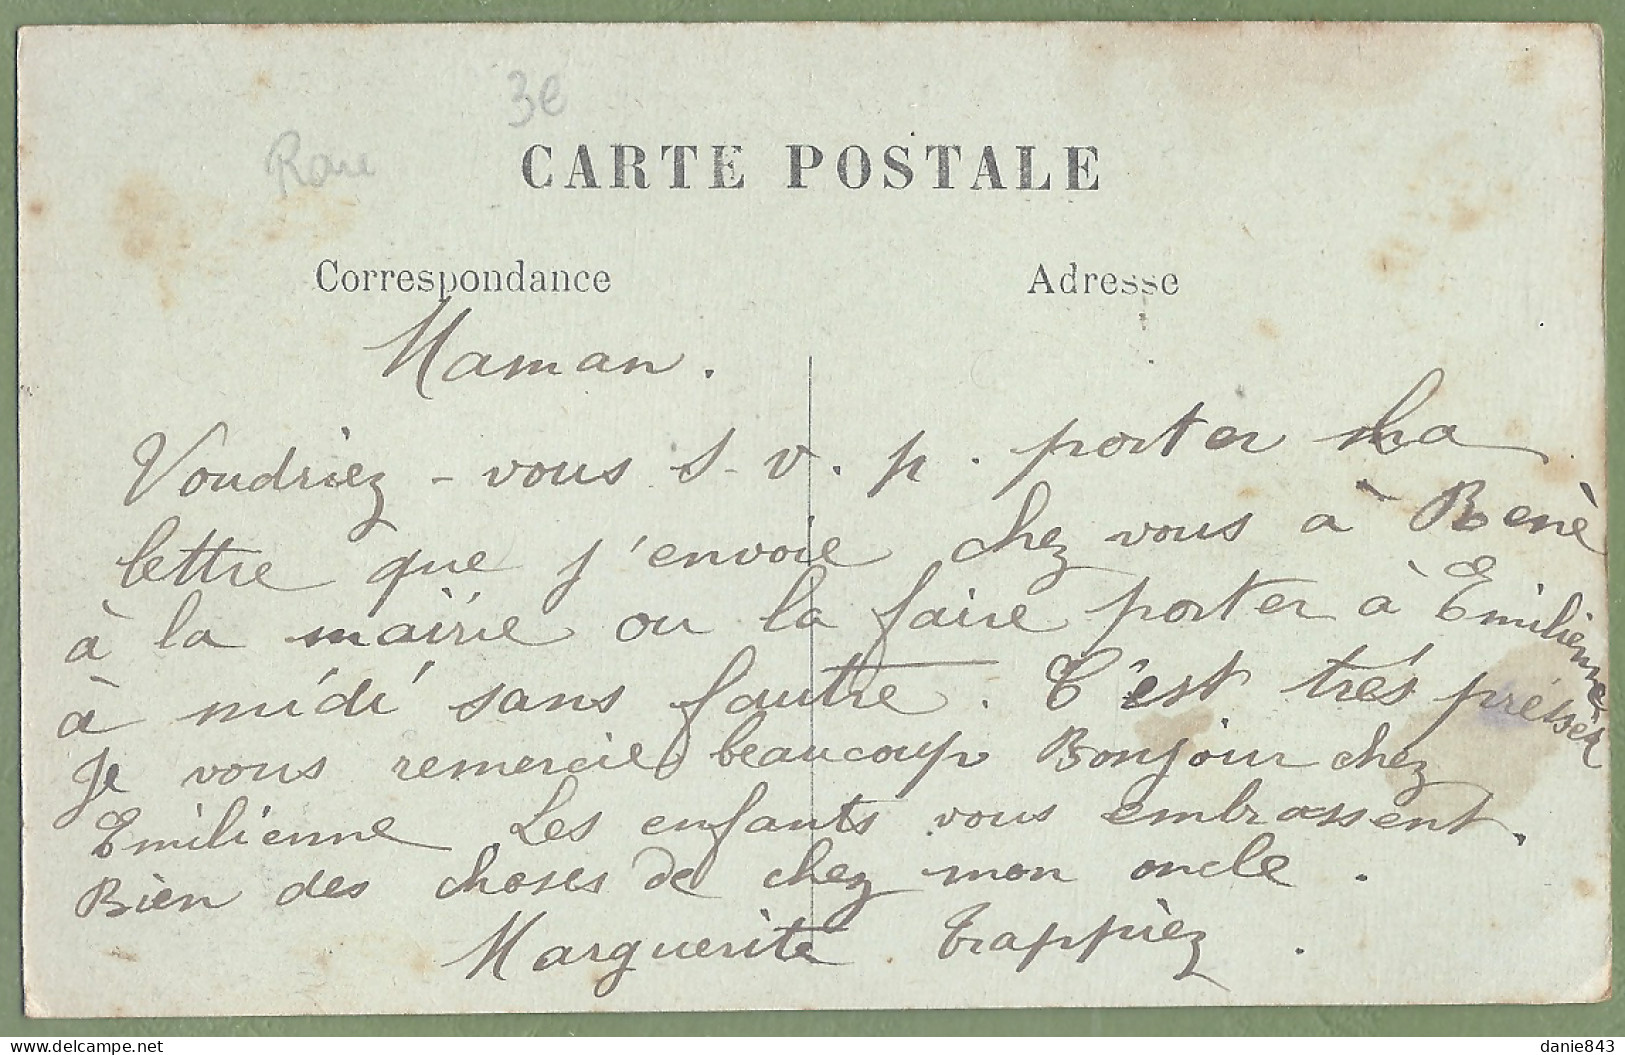 3e
Rare
CARTE POSTALE
Correspondance
Adresse
Maman.
Voudriez-vous s.v.p. porter la
lettre que j'envoie chez vous à Renè
à la mairie ou la faire porter à Emilienne
à midi sans fautre. C'est très présser
Je vous remercie beaucoup Bonjour chez
Emilienne Les enfants vous embrassent.
Bien des choses de chez mon oncle.
Marguerite Trappiez.
delcampe.net
danie843